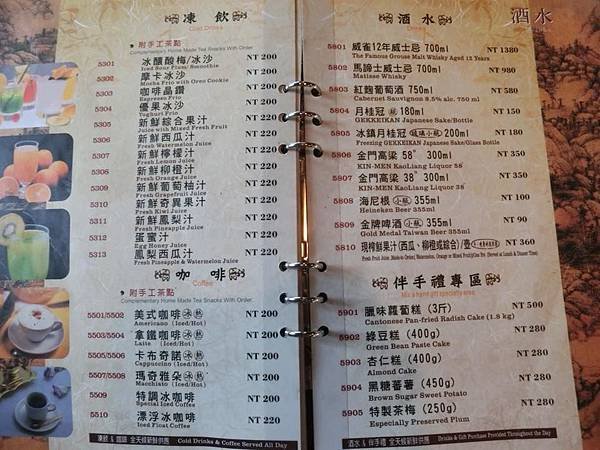 凍 飲
Cold Drinks
★附手工茶點
Complementary Home Made Tea Snacks With Order
5301 冰釀酸梅/冰沙 NT 200
Iced Sour Plum/Smoothie
5302 摩卡冰沙 NT 200
Mocha Frio with Oreo Cookie
5303 咖啡晶鑽 NT 200
Espresso Frio
5304 優果冰沙 NT 200
Yoghurt Frio
5305 新鮮綜合果汁 NT 220
Juice with Mixed Fresh Fruit
5306 新鮮西瓜汁 NT 220
Fresh Watermelon Juice
5307 新鮮檸檬汁 NT 220
Fresh Lemon Juice
5308 新鮮柳橙汁 NT 220
Fresh Orange Juice
5309 新鮮葡萄柚汁 NT 220
Fresh Grapefruit Juice
5310 新鮮奇異果汁 NT 220
Fresh Kiwi Juice
5311 新鮮鳳梨汁 NT 220
Fresh Pineapple Juice
5312 蛋蜜汁 NT 220
Egg Honey Juice
5313 鳳梨西瓜汁 NT 220
Fresh Pineapple & Watermelon Juice
咖 啡
Coffee
★附手工茶點
Complementary Home Made Tea Snacks With Order
5501/5502 美式咖啡 冰 熱 NT 200
Americano (Iced/Hot)
5503/5504 拿鐵咖啡 冰 熱 NT 200
Latte (Iced/Hot)
5505/5506 卡布奇諾 冰 熱 NT 200
Cappuccino (Iced/Hot)
5507/5508 瑪奇雅朵 冰 熱 NT 200
Macchiato (Iced/Hot)
5509 特調冰咖啡 NT 200
Special Iced Coffee
5510 漂浮冰咖啡 NT 220
Iced Float Coffee
凍飲 & 咖啡 全天候新鮮供應 Cold Drinks & Coffee Served All Day
酒水
酒 水
Drinks
5801 威雀12年威士忌 700ml NT 1380
The Famous Grouse Malt Whisky Aged 12 Years
5802 馬諦士威士忌 700ml NT 980
Matisse Whisky
5803 紅麴葡萄酒 750ml NT 580
Cabernet Sauvignon 8.5% alc. 750 ml
5804 月桂冠 180ml NT 150
GEKKEIKAN Japanese Sake/Bottle
5805 冰鎮月桂冠 玻璃小瓶 200ml NT 180
Freezing GEKKEIKAN Japanese Sake/Glass Bottle
5806 金門高梁 58° 300ml NT 350
KIN-MEN KaoLiang Liquor 58°
5807 金門高梁 38° 300ml NT 350
KIN-MEN KaoLiang Liquor 38°
5808 海尼根 小瓶 355ml NT 100
Heineken Beer 355ml
5809 金牌啤酒 小瓶 355ml NT 90
Gold Medal Taiwan Beer 355ml
5810 現榨鮮果汁(西瓜、柳橙或綜合)/壺 NT 360
Fresh Fruit Juice, Made-to-Order( Watermelon, Orange or Mixed Fruit)/One Pot (Served at Lunch & Dinner Time)
伴手禮專區
5901 臘味蘿蔔糕 (3斤) NT 500
Cantonese Pan-fried Radish Cake (1.8 kg)
5902 綠豆糕 (400g) NT 280
Green Bean Paste Cake
5903 杏仁糕 (400g) NT 280
Almond Cake
5904 黑糖蕃薯 (450g) NT 280
Brown Sugar Sweet Potato
5905 特製茶梅 (250g) NT 280
Especially Preserved Plum
酒水 & 伴手禮 全天候新鮮供應 Drinks & Gift Purchase Provided Throughout the Day